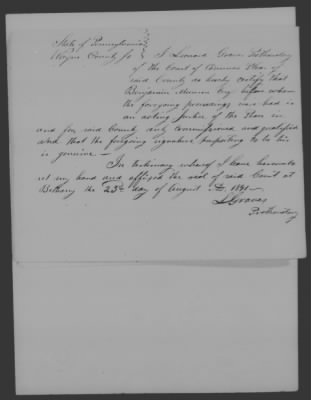 State of Pennsylvania
Wayne County Ss I Leonard Graves Prothonotary
of the Court of Common Pleas of
said County do hereby certify that
Benjamin Esq. before whom
the foregoing proceedings was had is
an acting Justice of the Peace in
and for said County duly commissioned and qualified
and that the foregoing signature purporting to be his
is genuine —
In testimony whereof I have hereunto
set my hand and affixed the seal of said Court at
Bethany the 25th day of August 
L Graves
Prothonotary